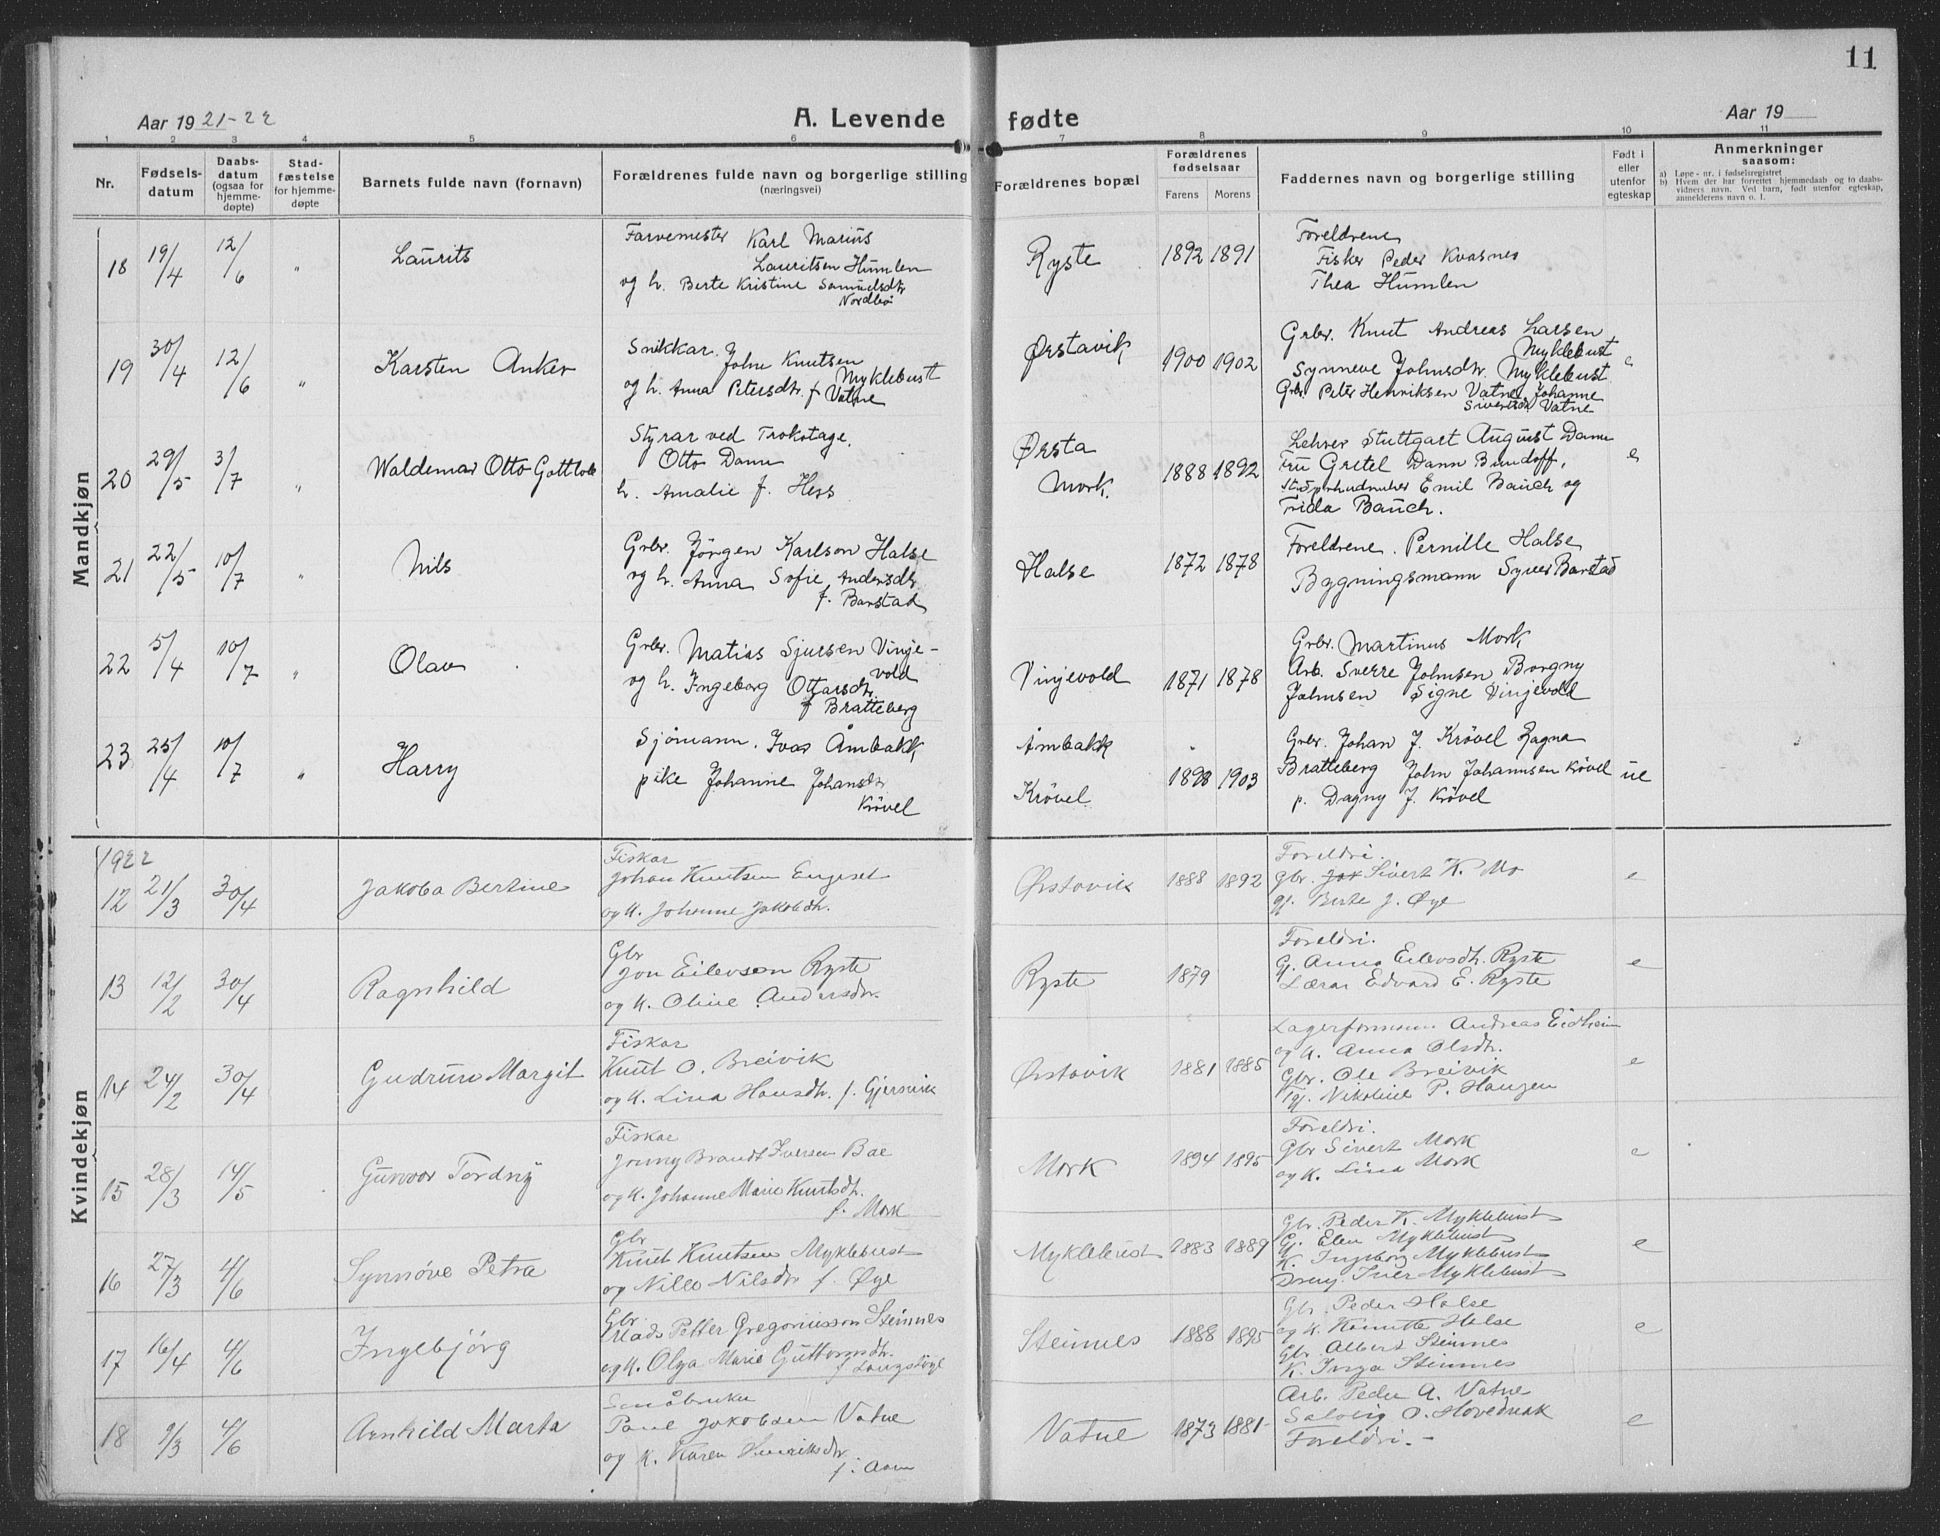 11
Aar 1921-22
A. Levende fødte
Aar 19
1 2 3 4 5 6 7 8 9 10 11
Nr.
Fødsels-
datum
Daabs-
datum
(ogsaa for
hjemme-
døpte)
Stad-
fæstelse
for hjemme-
døpte
Barnets fulde navn (fornavn)
Forældrenes fulde navn og borgerlige stilling
(næringsvei)
Forældrenes bopæl
Forældrenes
fødselsaar
Farens Morens
Faddernes navn og borgerlige stilling
Født i
eller
utenfor
egteskap
Anmerkninger
saasom:
a) Løpe-nr. i fødselsregistret
b) Hvem der har forrettet hjemmedaab og to daabs-
vidners navn. Ved barn, født utenfor egteskap,
anmelderens navn o. l.
Mandkjøn
18 19/4 12/6 " Laurits
Farvemester Karl Marius
Lauritsen Humlen
og h. Berte Kristine Samuelsdtr
Nordbø
Ryste 1892 1891
Foreldrene
Fisker Peder Kvasnes
Thea Humlen
19 30/4 12/6 " Karsten Anker
Snikkar. John Knutsen
Myklebust
og h. Anna Petersdtr f Vatne
Ørstavik 1900 1902
Grbr. Knut Andreas Larsen
Myklebust
Synneve Johnsdtr. Myklebust
Grbr Peter Henriksen Vatne, Johanne
Sivertsdtr Vatne
e
20 29/5 3/7 " Waldemar Otto Gottlob
Styrar ved Trokotage,
Otto Dann
h. Amalie f. Hess
Ørsta
Mork. 1888 1892
Lehrer Stuttgart August Dann
Fru Gretel Dann
Emil Bauch og
Frida Bauch.
e
21 22/5 10/7 " Nils
Grbr. Jörgen Karlson Halse
og h. Anna Sofie Andersdtr
f. Barstad
Halse 1872 1878
Foreldrene. Pernille Halse
Bygningsmann Syver Barstad
22 5/4 10/7 " Olav
Grbr. Matias Sjursen Vinje-
vold
og h. Ingeborg Ottarsdtr.
f Bratteberg
Vinjevold 1871 1878
Grbr. Martinus Mork
Arb. Sverre Johnsen Borgny
Johnsen Signe Vinjevold
23 25/4 10/7 " Harry
Sjömann. Ivar Åmbakk
pike Johanne Johansdtr
Krövel
Åmbakk
Krövel 1898 1903
Grbr. Johan J. Krövel Ragna
Bratteberg John Johannsen Kövel
p. Dagny J. Krövel
ue
Kvindekjøn
1922
12 21/3 30/4 Jakoba Bertine
Fiskar
Johan Knutsen Engeset
og k. Johanne Jakobdtr.
Ørstavik 1888 1892
Foreldri.
gbr. Sivert K. Mo
gj. Berte J. Øye
e
13 12/2 30/4 Ragnhild
Gbr
Jon Eilevsen Ryste
og k. Oline Andersdtr.
Ryste 1879
Foreldri.
G. Anna Eilevsdtr. Ryste
Lærar Edvard E. Ryste
e
14 24/2 30/4 Gudrun Margit
Fiskar
Knut O. Breivik
og k. Lina Hansdtr. f. Gjersvik
Ørstavik 1881 1885
Lagerformann Andreas Eidheim
og k. Anna Olsdtr.
Gbr. Ole Breivik
Tgj. Nikoline P. Haugen
e
15 28/3 14/5 Gunvor Tordny
Fiskar
Jonny Brandt Iversen Bae
og k. Johanne Marie Knutsdtr.
f. Mork
Mork 1894 1895
Foreldri.
Gbr Sivert Mork
og k. Lina Mork
e
16 27/3 4/6 Synnöve Petra
Gbr
Knut Knutsen Myklebust
og Nille Nilsdtr f. Øye
Myklebust 1883 1889
Gbr. Peder K. Myklebust
Gj. Elen Myklebust
K. Ingeborg Myklebust
Dreng. Iver Myklebust
e
17 16/4 4/6 Ingebjörg
Gbr.
Mads Petter Gregoriusson Steinnes
og k. Olga Marie Guttormsdtr.
f. Langstöyl
Steinnes 1888 1895
Gbr. Peder Halse
og k. Kanutte Halse
Gbr. Albert Steinnes
K. Inga Steinnes
e
18 9/3 4/6 Arnhild Marta
Småbruker
Paul Jakobsen Vatne
og k. Karen Henriksdtr
f. Aam
Vatne 1873 1881-
Arb. Peder A. Vatne
Solveig O. Hovdenak
Foreldri. -
e